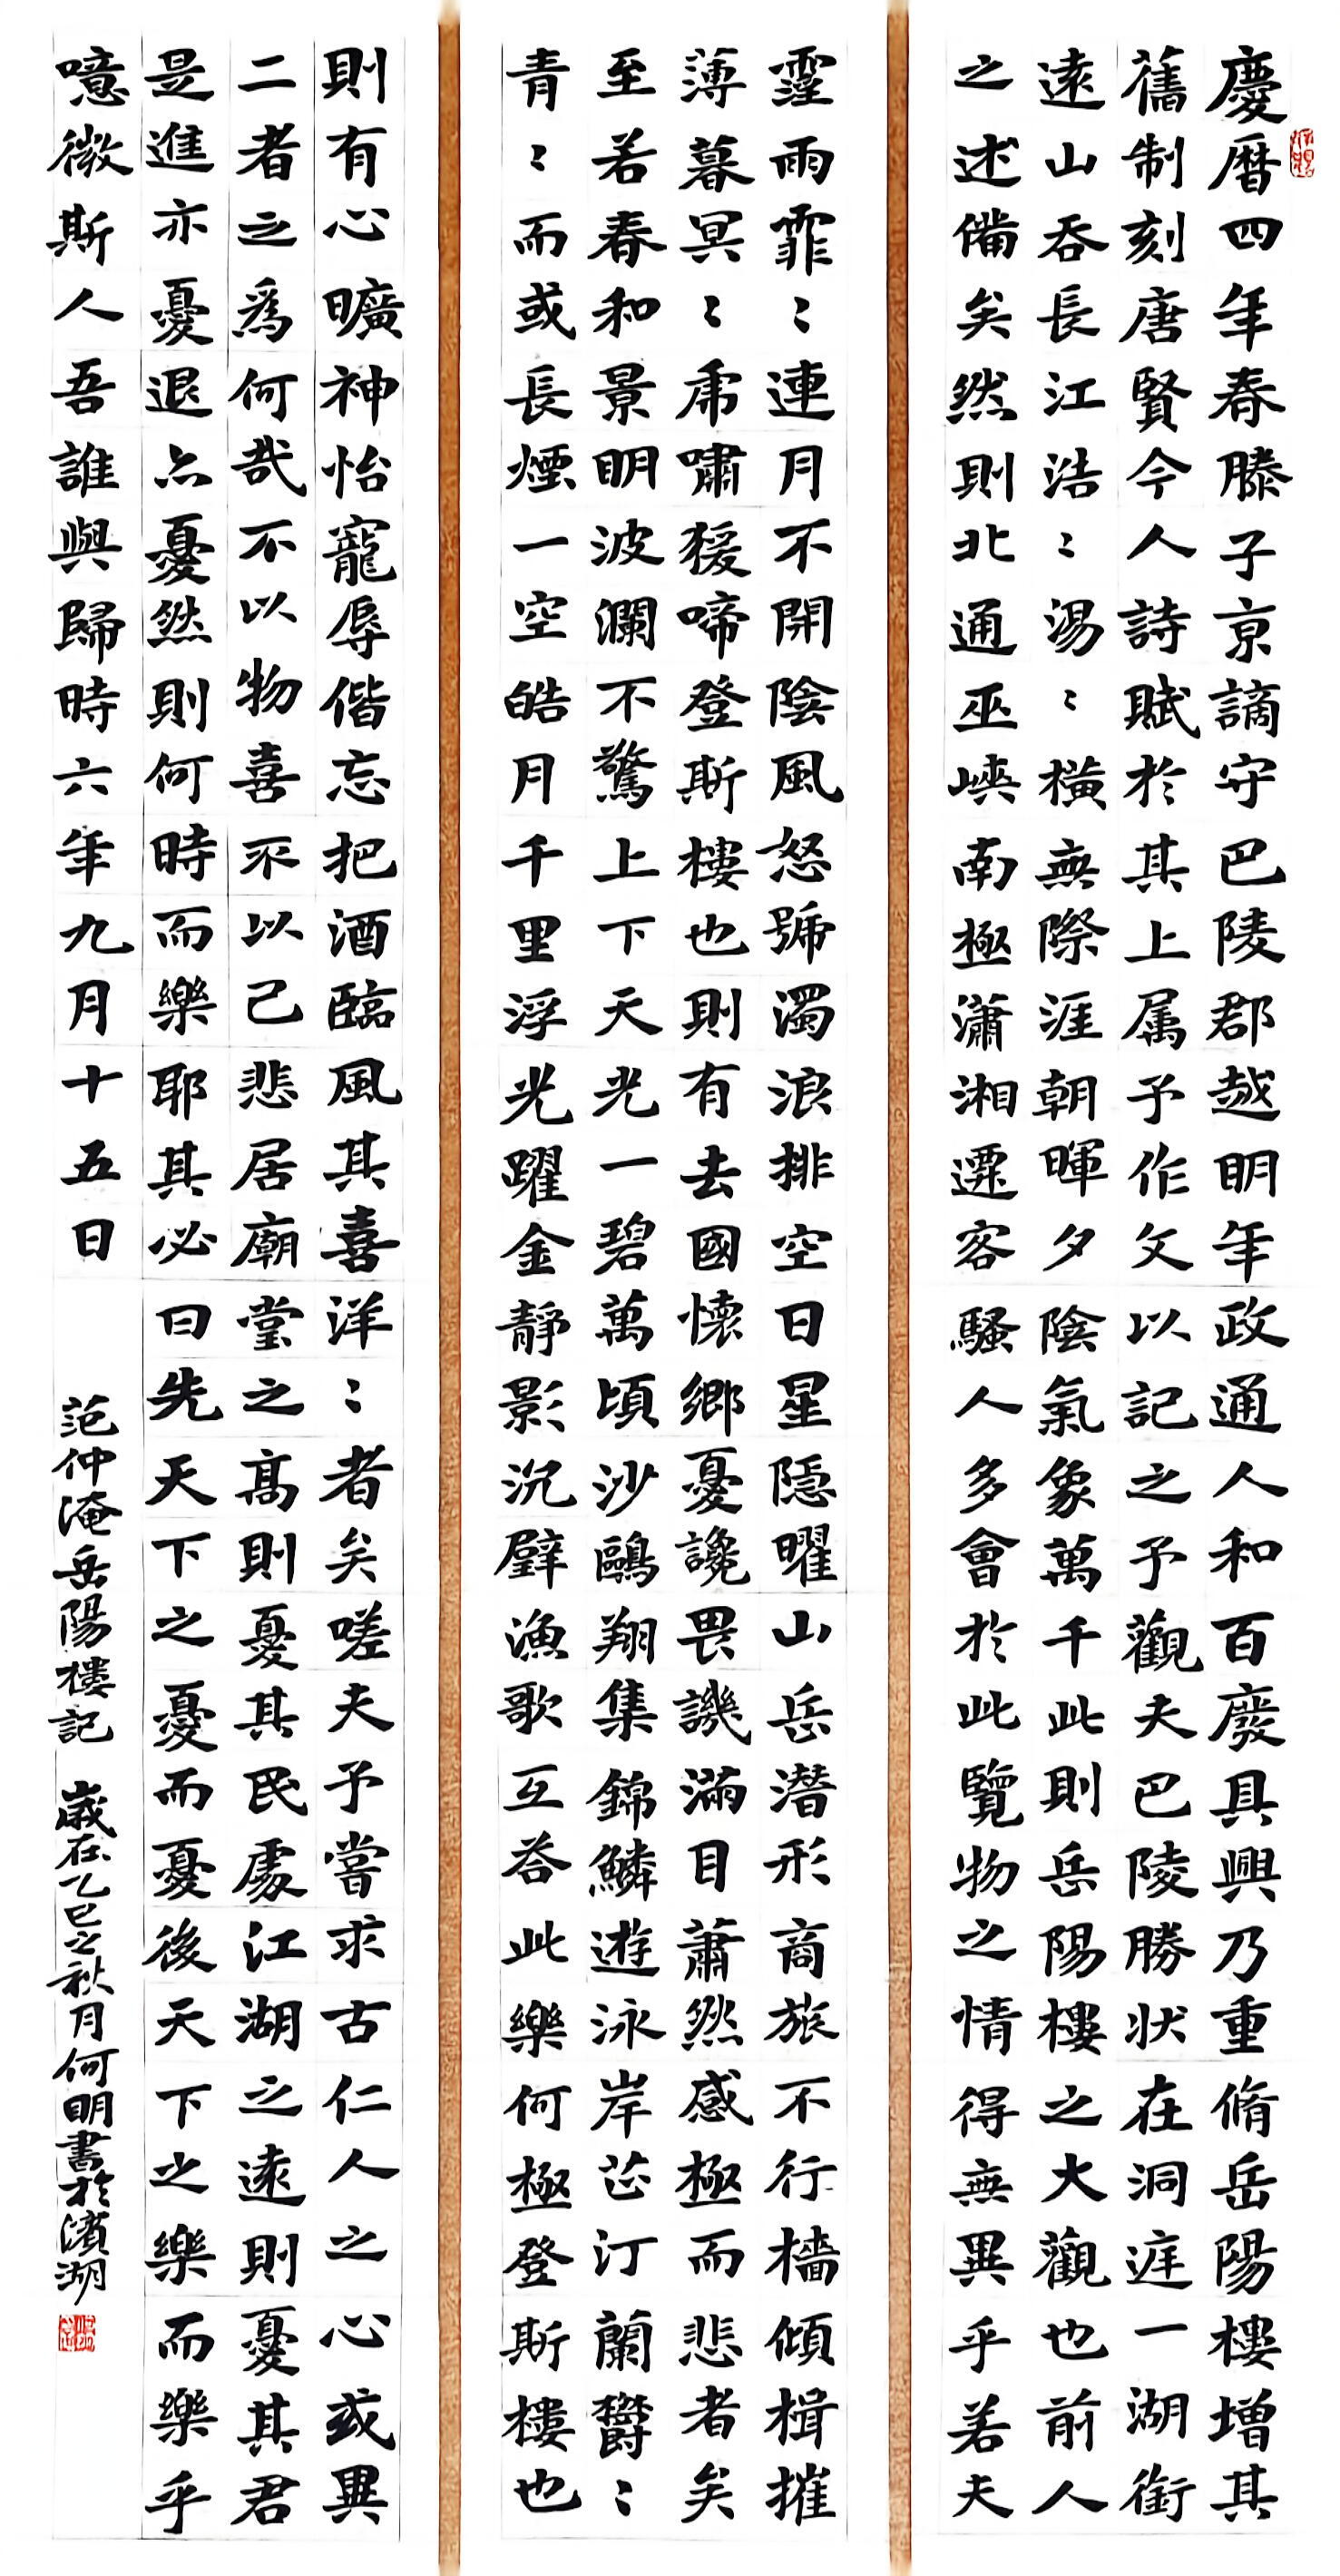 慶曆四年春滕子京謫守巴陵郡越明年政通人和百廢具興乃重脩岳陽樓增其
舊制刻唐賢今人詩賦於其上属予作文以記之予觀夫巴陵勝状在洞庭一湖銜
遠山吞長江浩〻湯〻橫無際涯朝暉夕陰氣象萬千此則岳陽樓之大觀也前人
之述備矣然則北通巫峽南極瀟湘遷客騷人多會於此覽物之情得無異乎若夫
霪雨霏〻連月不開陰風怒號濁浪排空日星隱曜山岳潛形商旅不行檣傾楫摧
薄暮冥〻虎嘯猨啼登斯樓也則有去國懷鄉憂讒畏譏滿目蕭然感極而悲者矣
至若春和景明波瀾不驚上下天光一碧萬頃沙鷗翔集錦鱗遊泳岸芷汀蘭欝〻
青〻而或長煙一空皓月千里浮光躍金靜影沉璧漁歌互荅此樂何極登斯樓也
則有心曠神怡寵辱偕忘把酒臨風其喜洋〻者矣嗟夫予嘗求古仁人之心或異
二者之為何哉不以物喜不以己悲居廟堂之高則憂其民處江湖之遠則憂其君
是進亦憂退亦憂然則何時而樂耶其必曰先天下之憂而憂後天下之樂而樂乎
噫微斯人吾誰與歸時六年九月十五日 范仲淹岳陽樓記 歲在乙巳之秋月何明書於濱湖